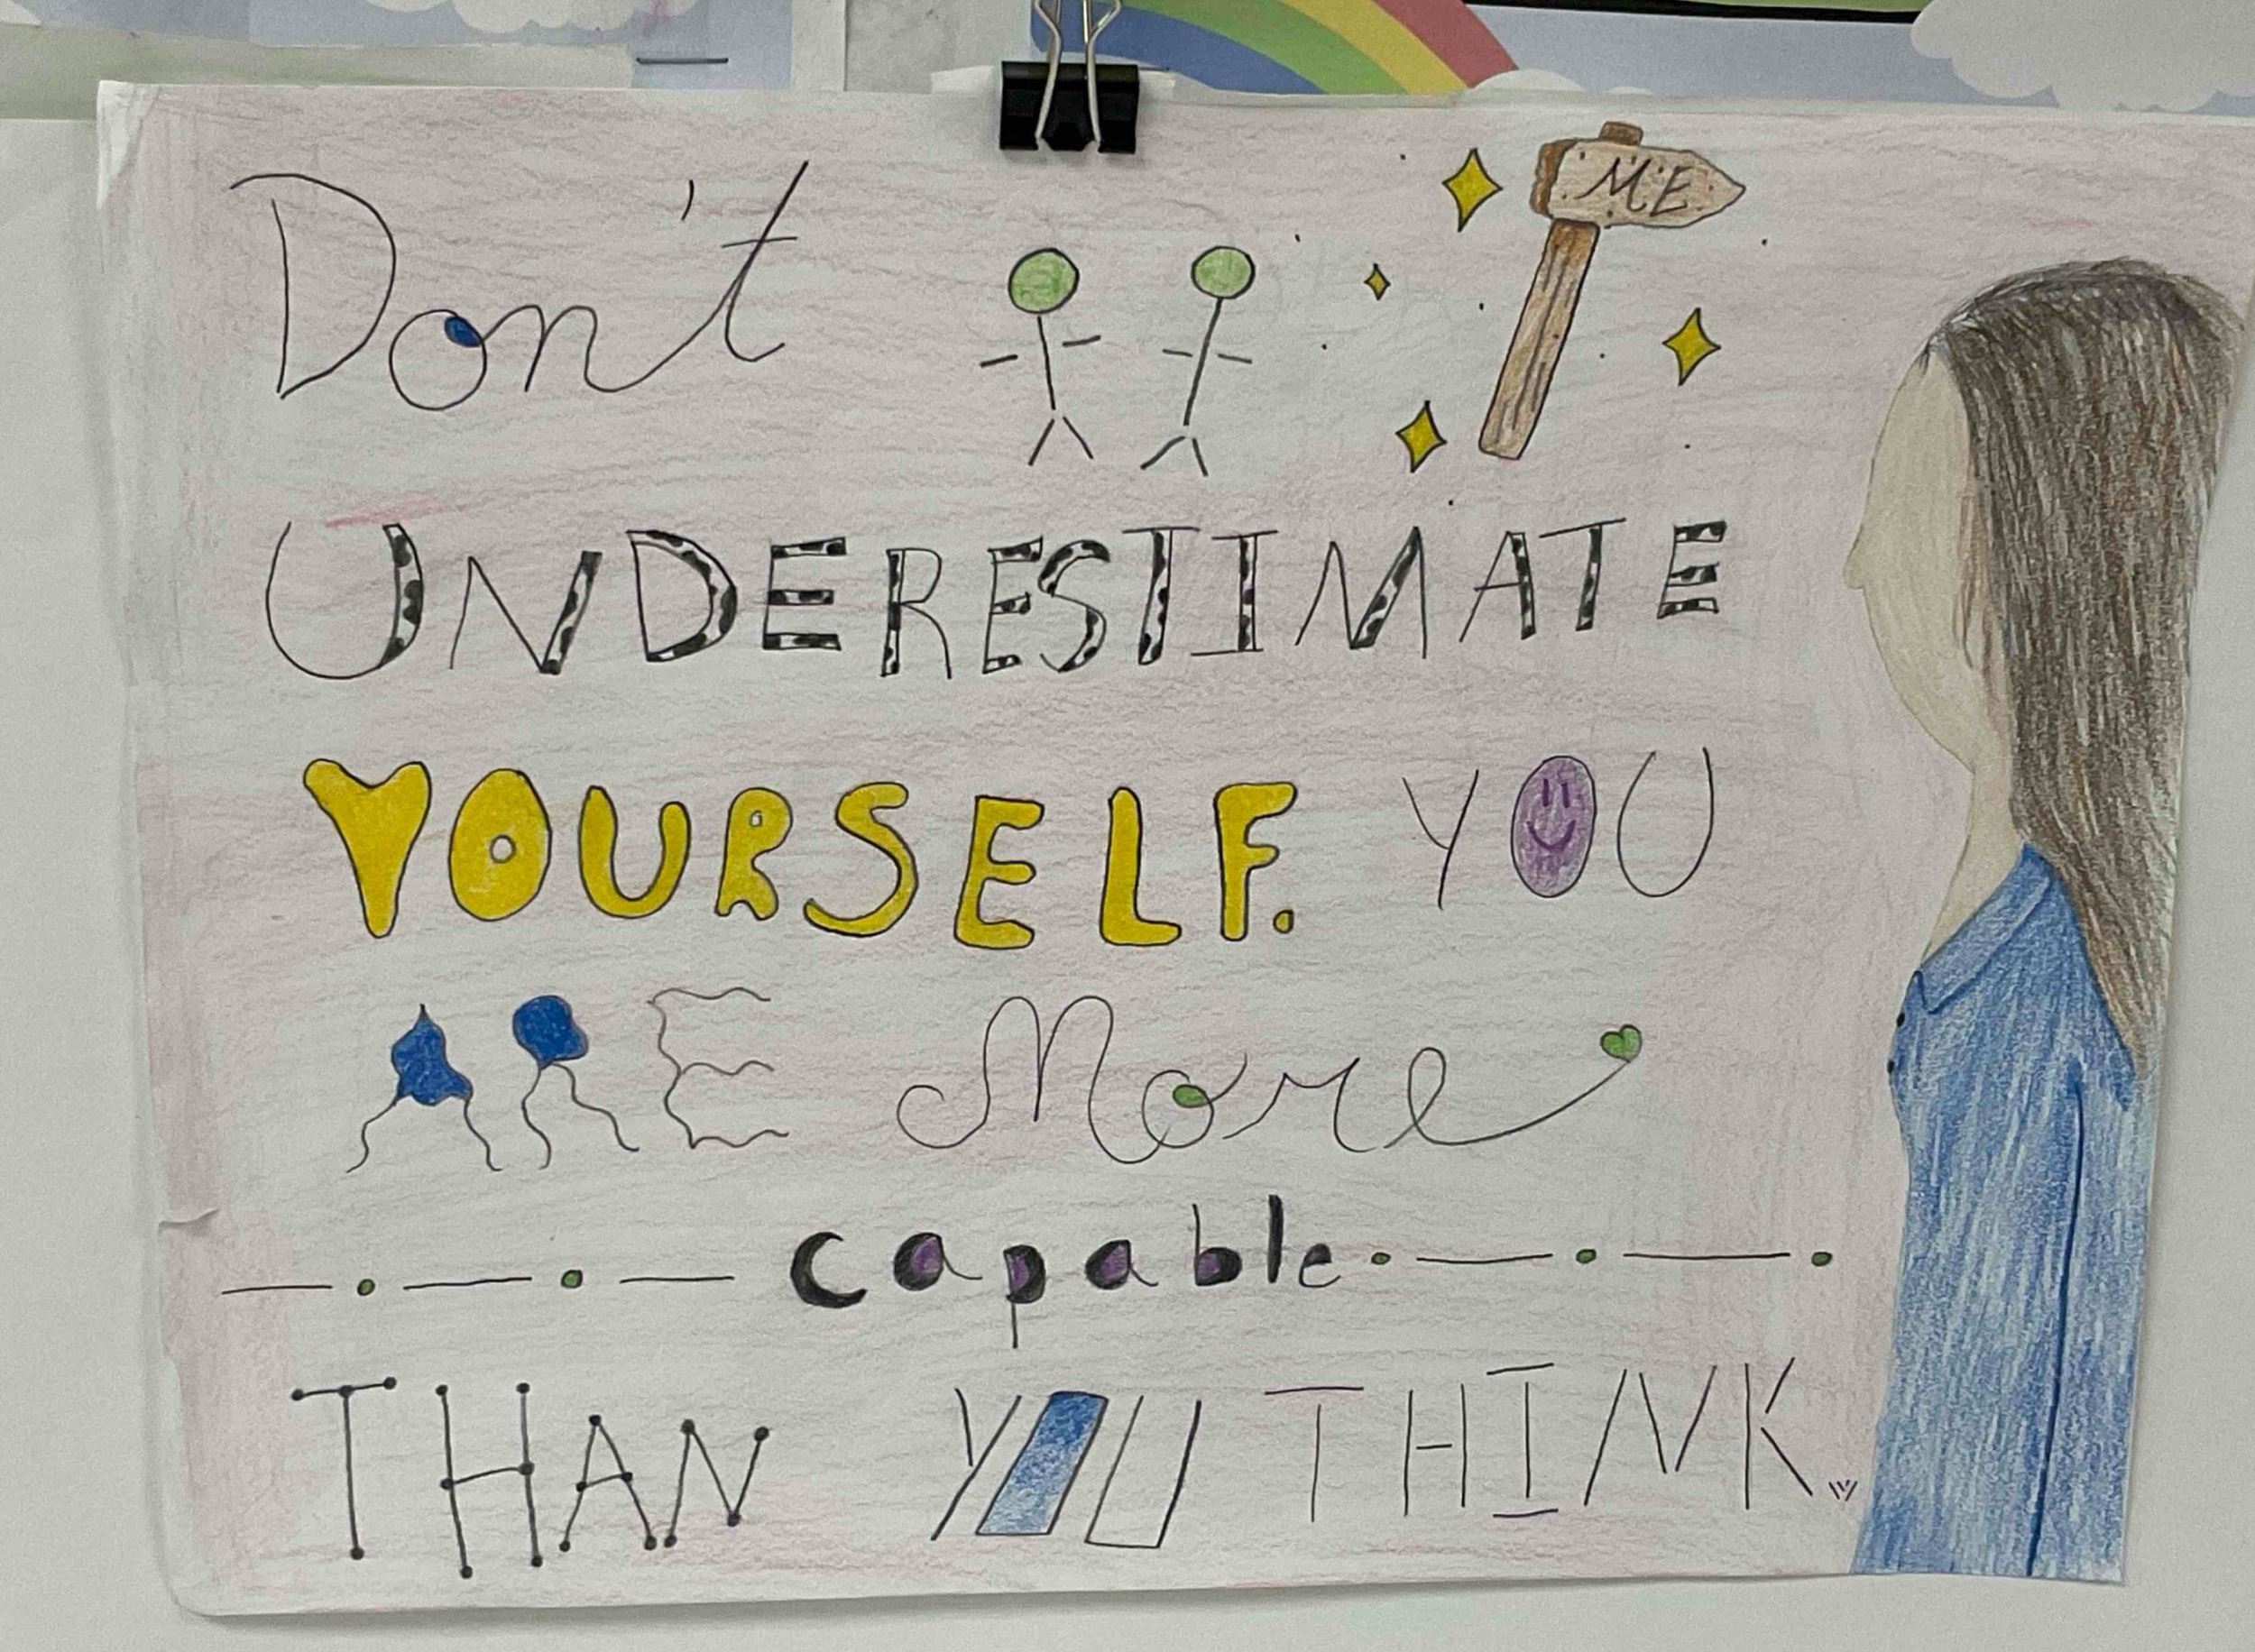 Don't
ME
UNDERESTIMATE
YOURSELF. YOU
ARE More
capable
THAN YOU THINK.